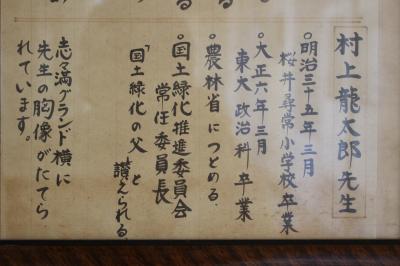 村上龍太郎先生
○明治三十五年三月
桜井尋常小学校卒業
○大正六年三月
東大政治科卒業
○農林省につとめる.
○国土緑化推進委員会
常任委員長
「国土緑化の父」と讃えられる.
志々満グランド横に
先生の胸像がたてら
れています。